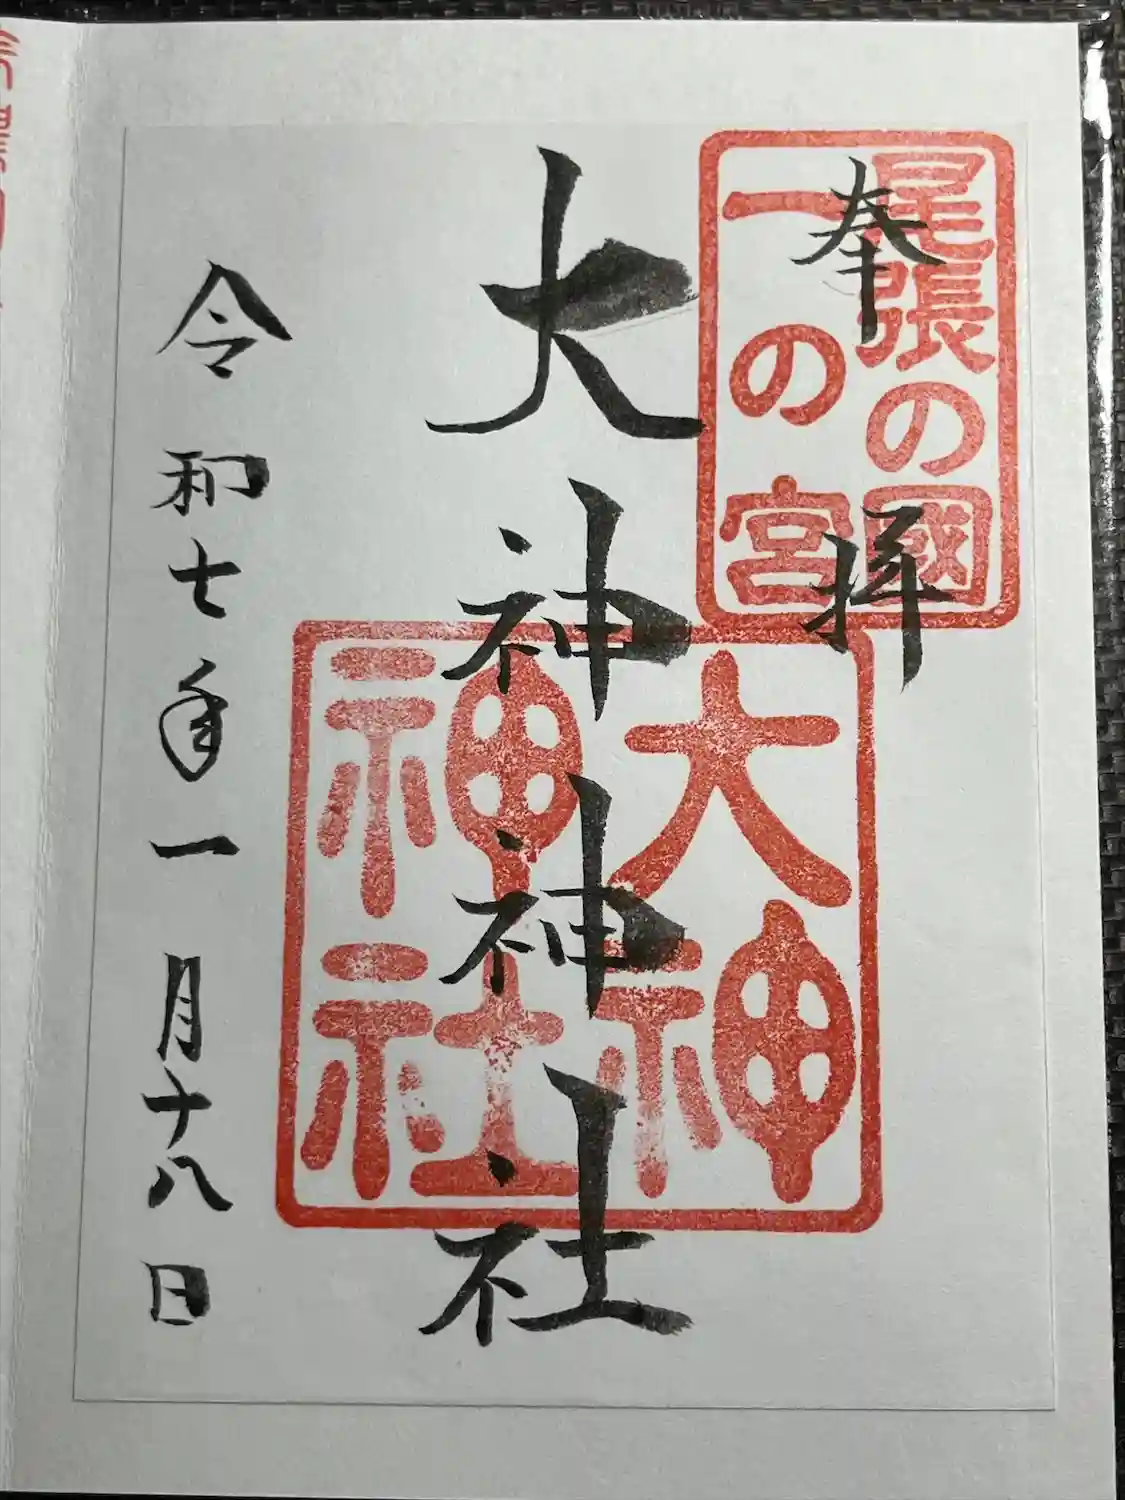 奉拝
尾張の國
一の宮
大神神社
大神
神社
令和七年一月十八日